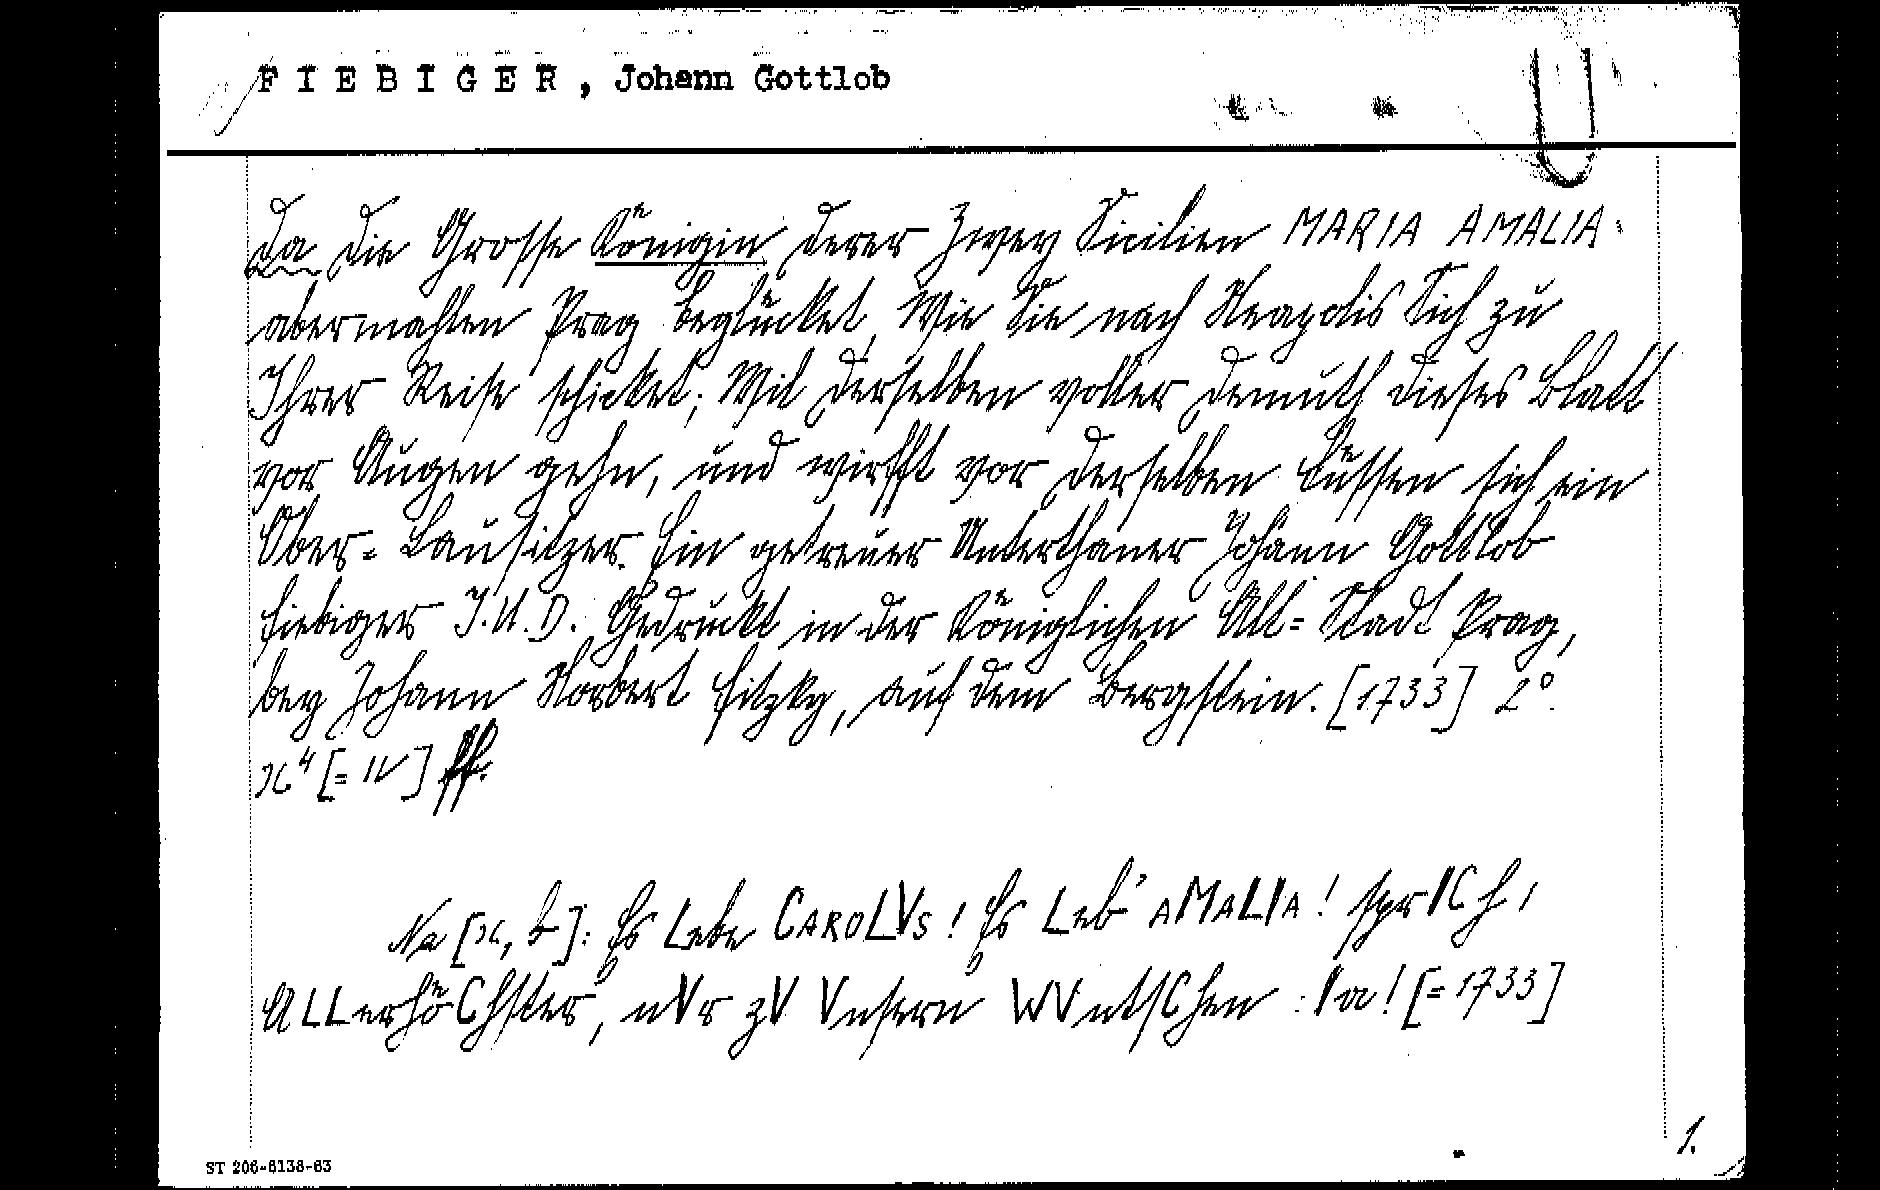 FIEBIGER, Johann Gottlob
Da die Grosse Königin derer Zwey Sicilien MARIA AMALIA
abermahlen Prag beglücket, Wie Sie nach Neapolis Sich zu
Ihrer Reise schicket; Will derselben voller Demuth dieses Blatt
vor Augen gehn, und wirfft vor derselben Füssen sich ein
Ober=Lausitzer. Ein getreuer Unterthaner Johann Gottlob
Fiebiger J.U.D. Gedruckt in der Königlichen Alt=Stadt Prag,
bey Johann Norbert Fitzky, auf dem Bergstein. [1733] 2°.
x⁴ [= IV] ff.
Na [x, b]: Es Lebe CAROLVS! Es Leb' AMALIA! sprICh,
ALLerhöChster, nVr zV Vnsern WVntsChen: Ia! [=1733]
1.
ST 206-6138-63